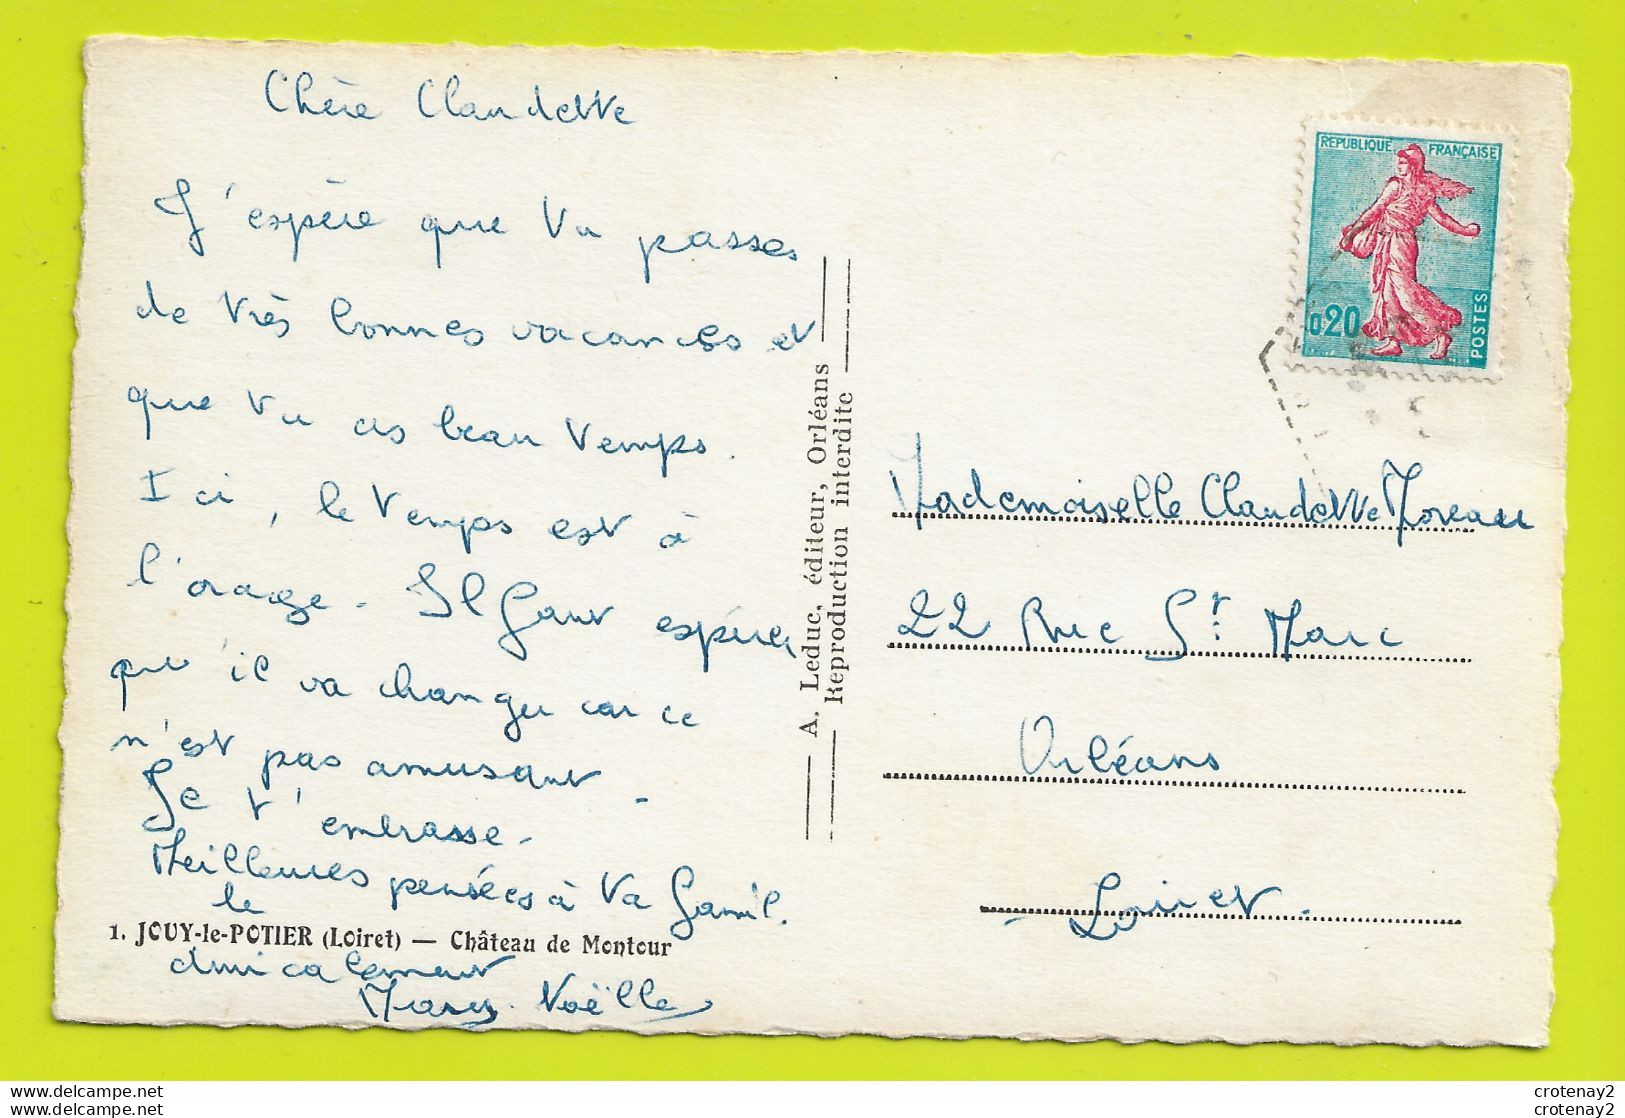 Chère Claudette
J'espère que tu passes
de très bonnes vacances et
que tu as beau temps.
Ici, le temps est à
l'orage. Il faut espérer
qu'il va changer car ce
n'est pas amusant.
Je t'embrasse.
Meilleures pensées à ta famil.
le
1. JOUY-le-POTIER (Loiret) — Château de Montour
Amicalement
Mary-Noëlle
A. Leduc, éditeur, Orléans
Reproduction interdite
REPUBLIQUE FRANÇAISE
0,20
POSTES
Mademoiselle Claudette Moreau
22 Rue St Marc
Orléans
- Loiret.
www.delcampe.net
www.delcampe.net
crotenay2
crotenay2